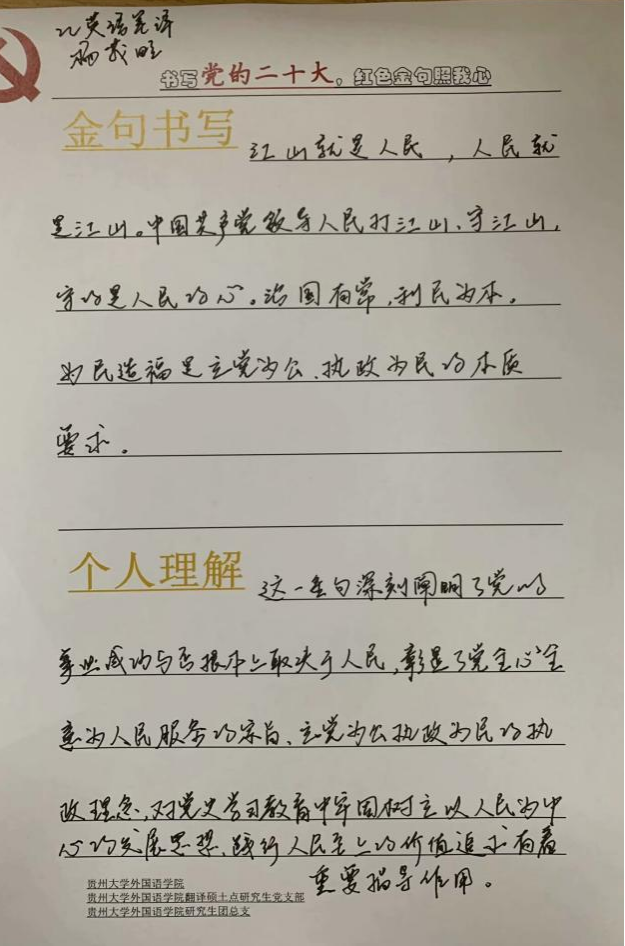 22英语笔译
杨
书写党的二十大，红色金句照我心
金句书写 江山就是人民，人民就
是江山。中国共产党领导人民打江山、守江山，
守的是人民的心。治国有常，利民为本。
为民造福是立党为公、执政为民的本质
要求。
个人理解 这一金句深刻阐明了党的
事业成功与否根本上取决于人民，彰显了党全心全
意为人民服务的宗旨、立党为公执政为民的执
政理念，对党史学习教育中牢固树立以人民为中
心的发展思想，践行人民至上的价值追求有着
重要指导作用。
贵州大学外国语学院
贵州大学外国语学院翻译硕士点研究生党支部
贵州大学外国语学院研究生团总支